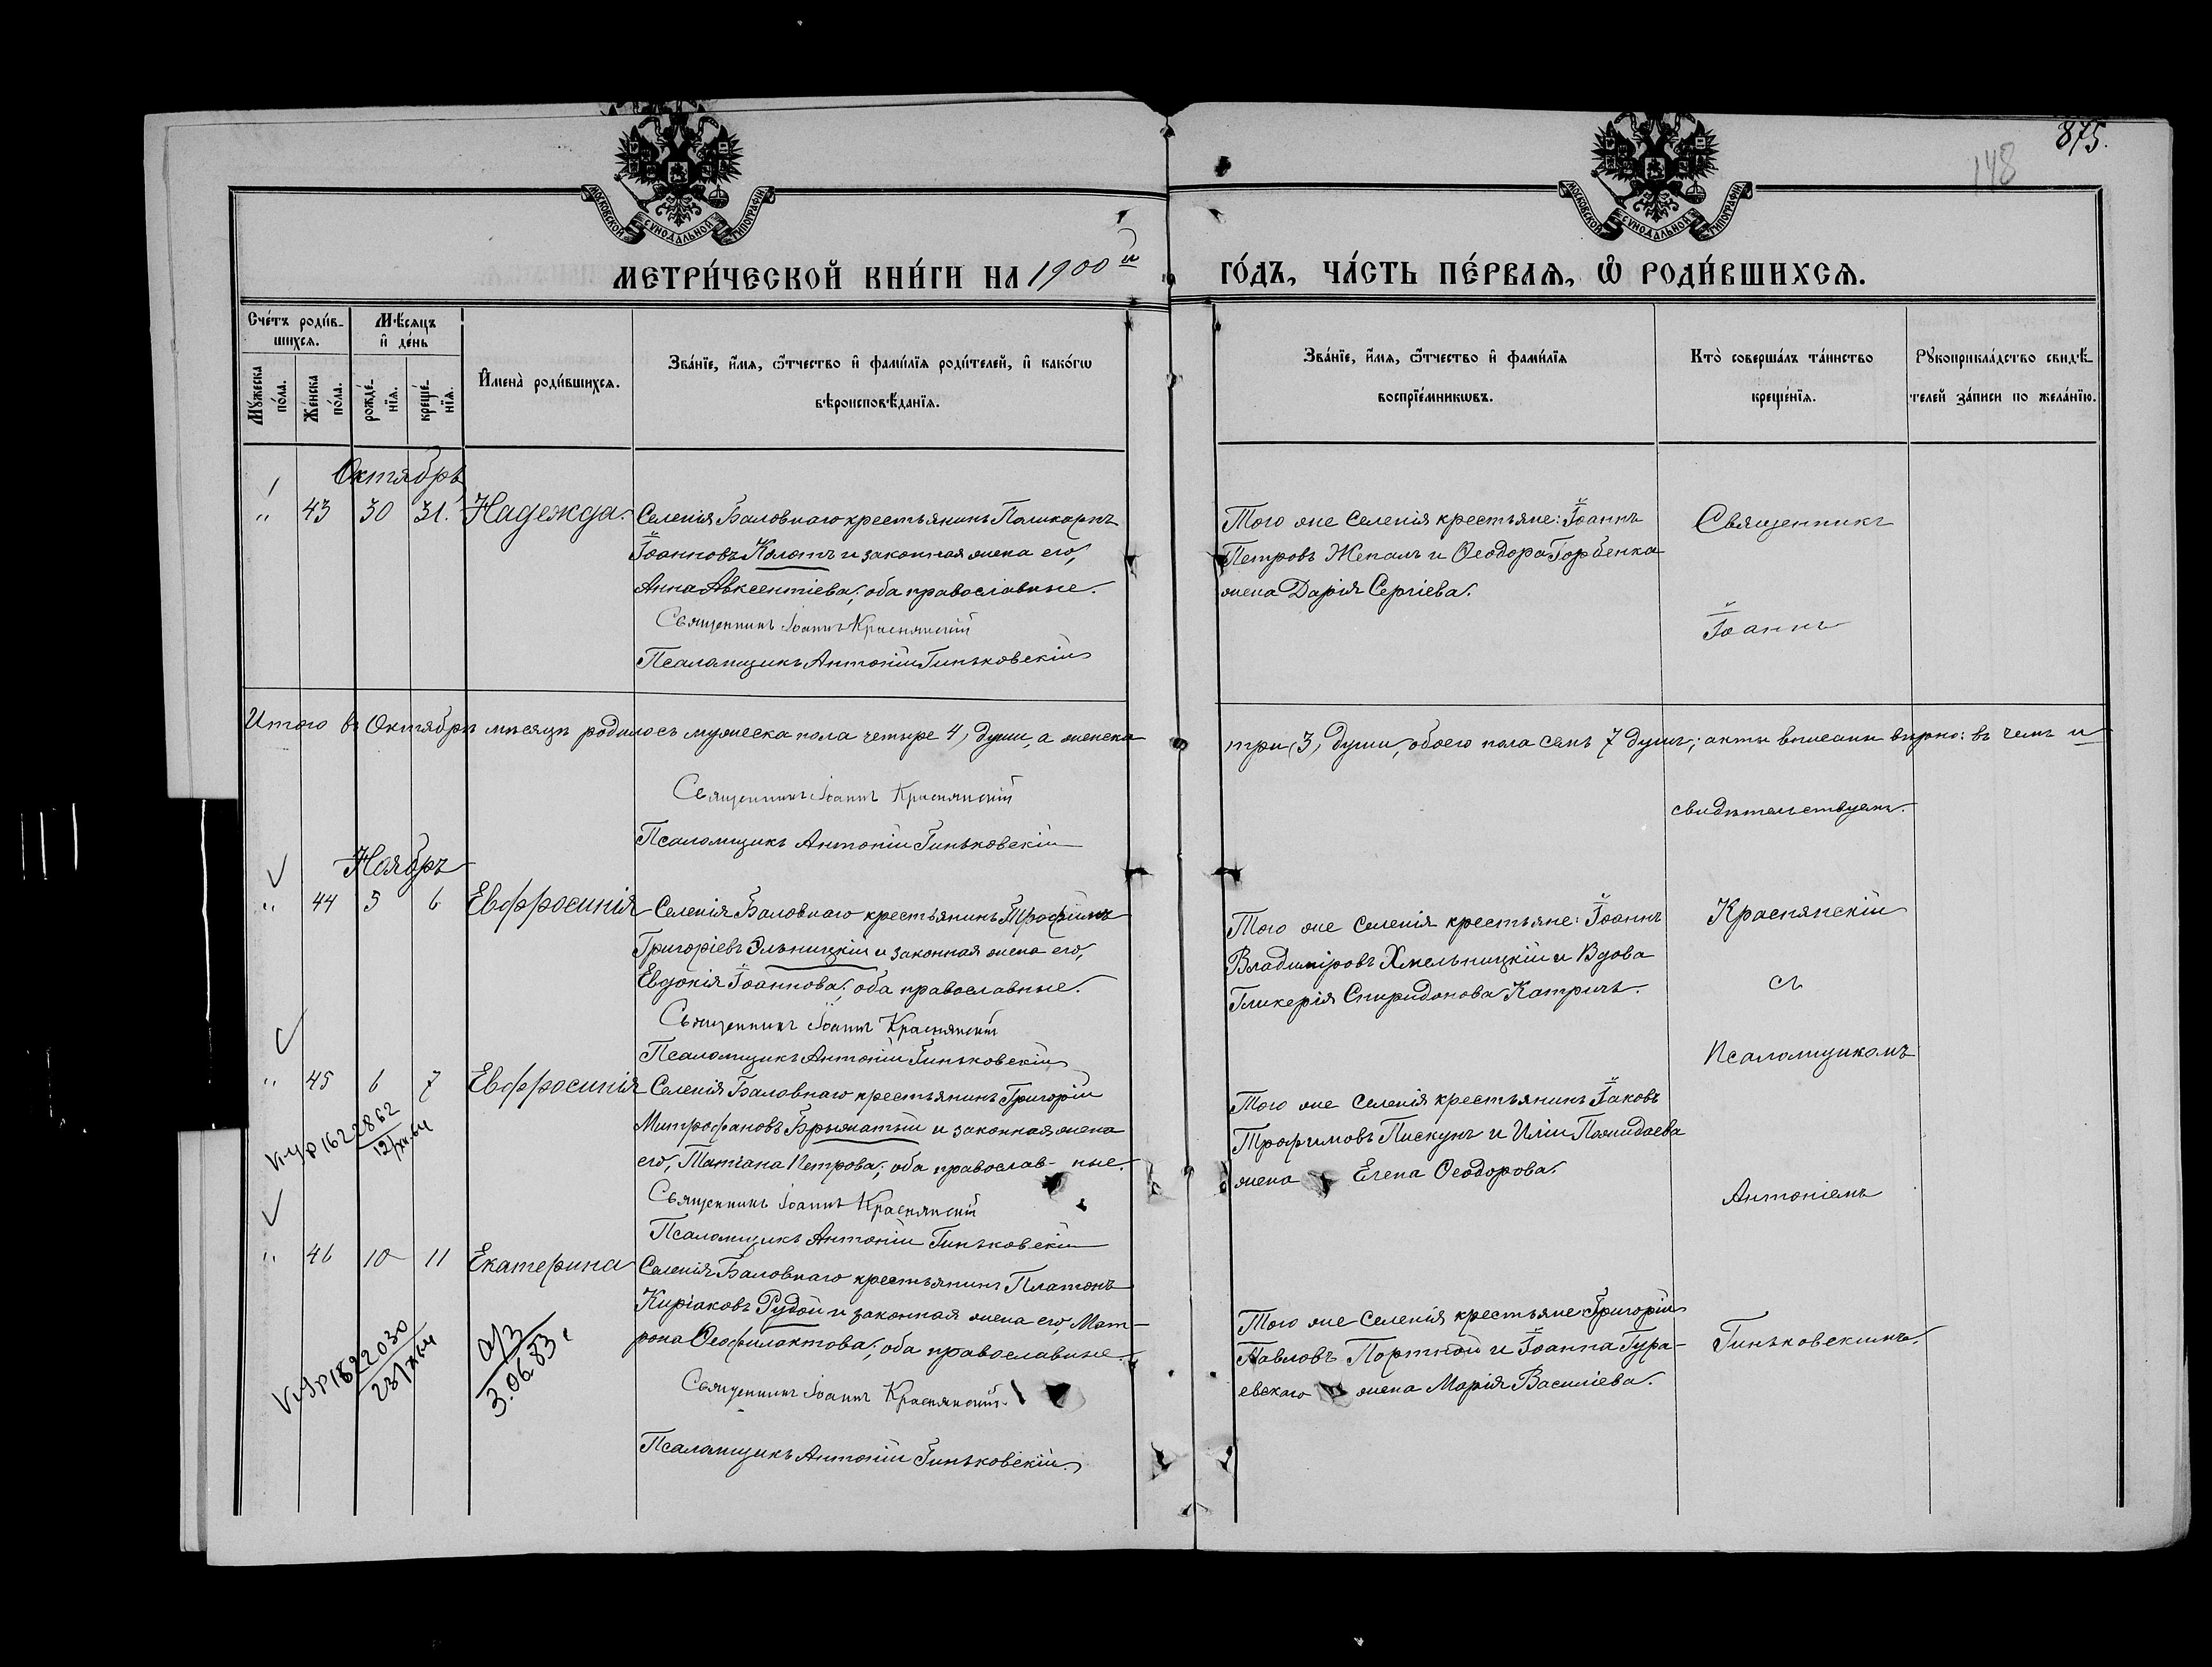 875.
148
МОСКОВСКОЙ СѴНОДАЛЬНОЙ ТИПОГРАФІИ
МОСКОВСКОЙ СѴНОДАЛЬНОЙ ТИПОГРАФІИ
МЕТРИ́ЧЕСКОЙ КНИ́ГИ НА 1900й
ГО́ДЪ, ЧА́СТЬ ПЕ́РВАѦ, Ѡ РОДИ́ВШИХСѦ.
Сче́тъ роди́в-
шихсѧ.
Мѣ́сѧцъ
и де́нь
Мꙋ́жеска
по́ла.
Же́нска
по́ла.
рожде́-
нїѧ.
креще́-
нїѧ.
Имена̀ роди́вшихсѧ.
Зва́нїе, и́мѧ, ѻ́тчество и фами́лїѧ роди́телей, и како́гѡ
вѣроисповѣ́данїѧ.
Зва́нїе, и́мѧ, ѻ́тчество и фами́лїѧ
воспрїе́мникѡвъ.
Кто̀ соверша́лъ та́инство
креще́нїѧ.
Рꙋкоприкла́дство свидѣ́-
телей за́писи по жела́нїю.
Октябрь
" 43 30 31. Надежда.
Селенія Баловнаго крестьянинъ Поликарпъ
Іоанновъ Колотъ и законная жена его,
Анна Авксентіева; оба православные.
Священникъ Іоаннъ Краснянскій
Псаломщикъ Антоній Гиньковскій
Того же селенія крестьяне: Іоаннъ
Петровъ Жепалъ и Ѳеодора Горбенка
жена Дарія Сергіева.
Священникъ
Іоаннъ
Итого въ Октябрѣ мѣсяцѣ родилось мужеска пола четыре 4, души, а женска
три (3) души, обоего пола семь 7 душъ; акты вписаны вѣрно: въ чемъ и
свидѣтельствуемъ.
Священникъ Іоаннъ Краснянскій
Псаломщикъ Антоній Гиньковскій
Ноябрь
" 44 5 6 Евфросинія
Селенія Баловнаго крестьянинъ Трофимъ
Григоріевъ Ильницкій и законная жена его,
Евдокія Іоаннова; оба православные.
Священникъ Іоаннъ Краснянскій
Псаломщикъ Антоній Гиньковскій
Того же селенія крестьяне: Іоаннъ
Владиміровъ Хмельницкій и Вдова
Гликерія Спиридонова Катричъ.
Краснянскій
съ
Псаломщикомъ
" 45 6 7 Евфросинія
Селенія Баловнаго крестьянинъ Григорій
Митрофановъ Брыжатый и законная жена
его, Татіана Петрова; оба православ- ные.
Священникъ Іоаннъ Краснянскій
Псаломщикъ Антоній Гиньковскій
Того же селенія крестьянинъ Іаковъ
Трофимовъ Пискунъ и Иліи Пожидаева
жена Елена Ѳеодорова.
Антоніемъ
1622862
" 46 10 11 Екатерина
Селенія Баловнаго крестьянинъ Платонъ
Киріаковъ Рудой и законная жена его, Мат-
рона Ѳеофилактова; оба православные.
Священникъ Іоаннъ Краснянскій.
Псаломщикъ Антоній Гиньковскій.
Того же селенія крестьяне Григорій
Павловъ Портной и Іоанна Гура-
евскаго жена Марія Василіева.
Гиньковскимъ.
1822030
а/з
3.06.83